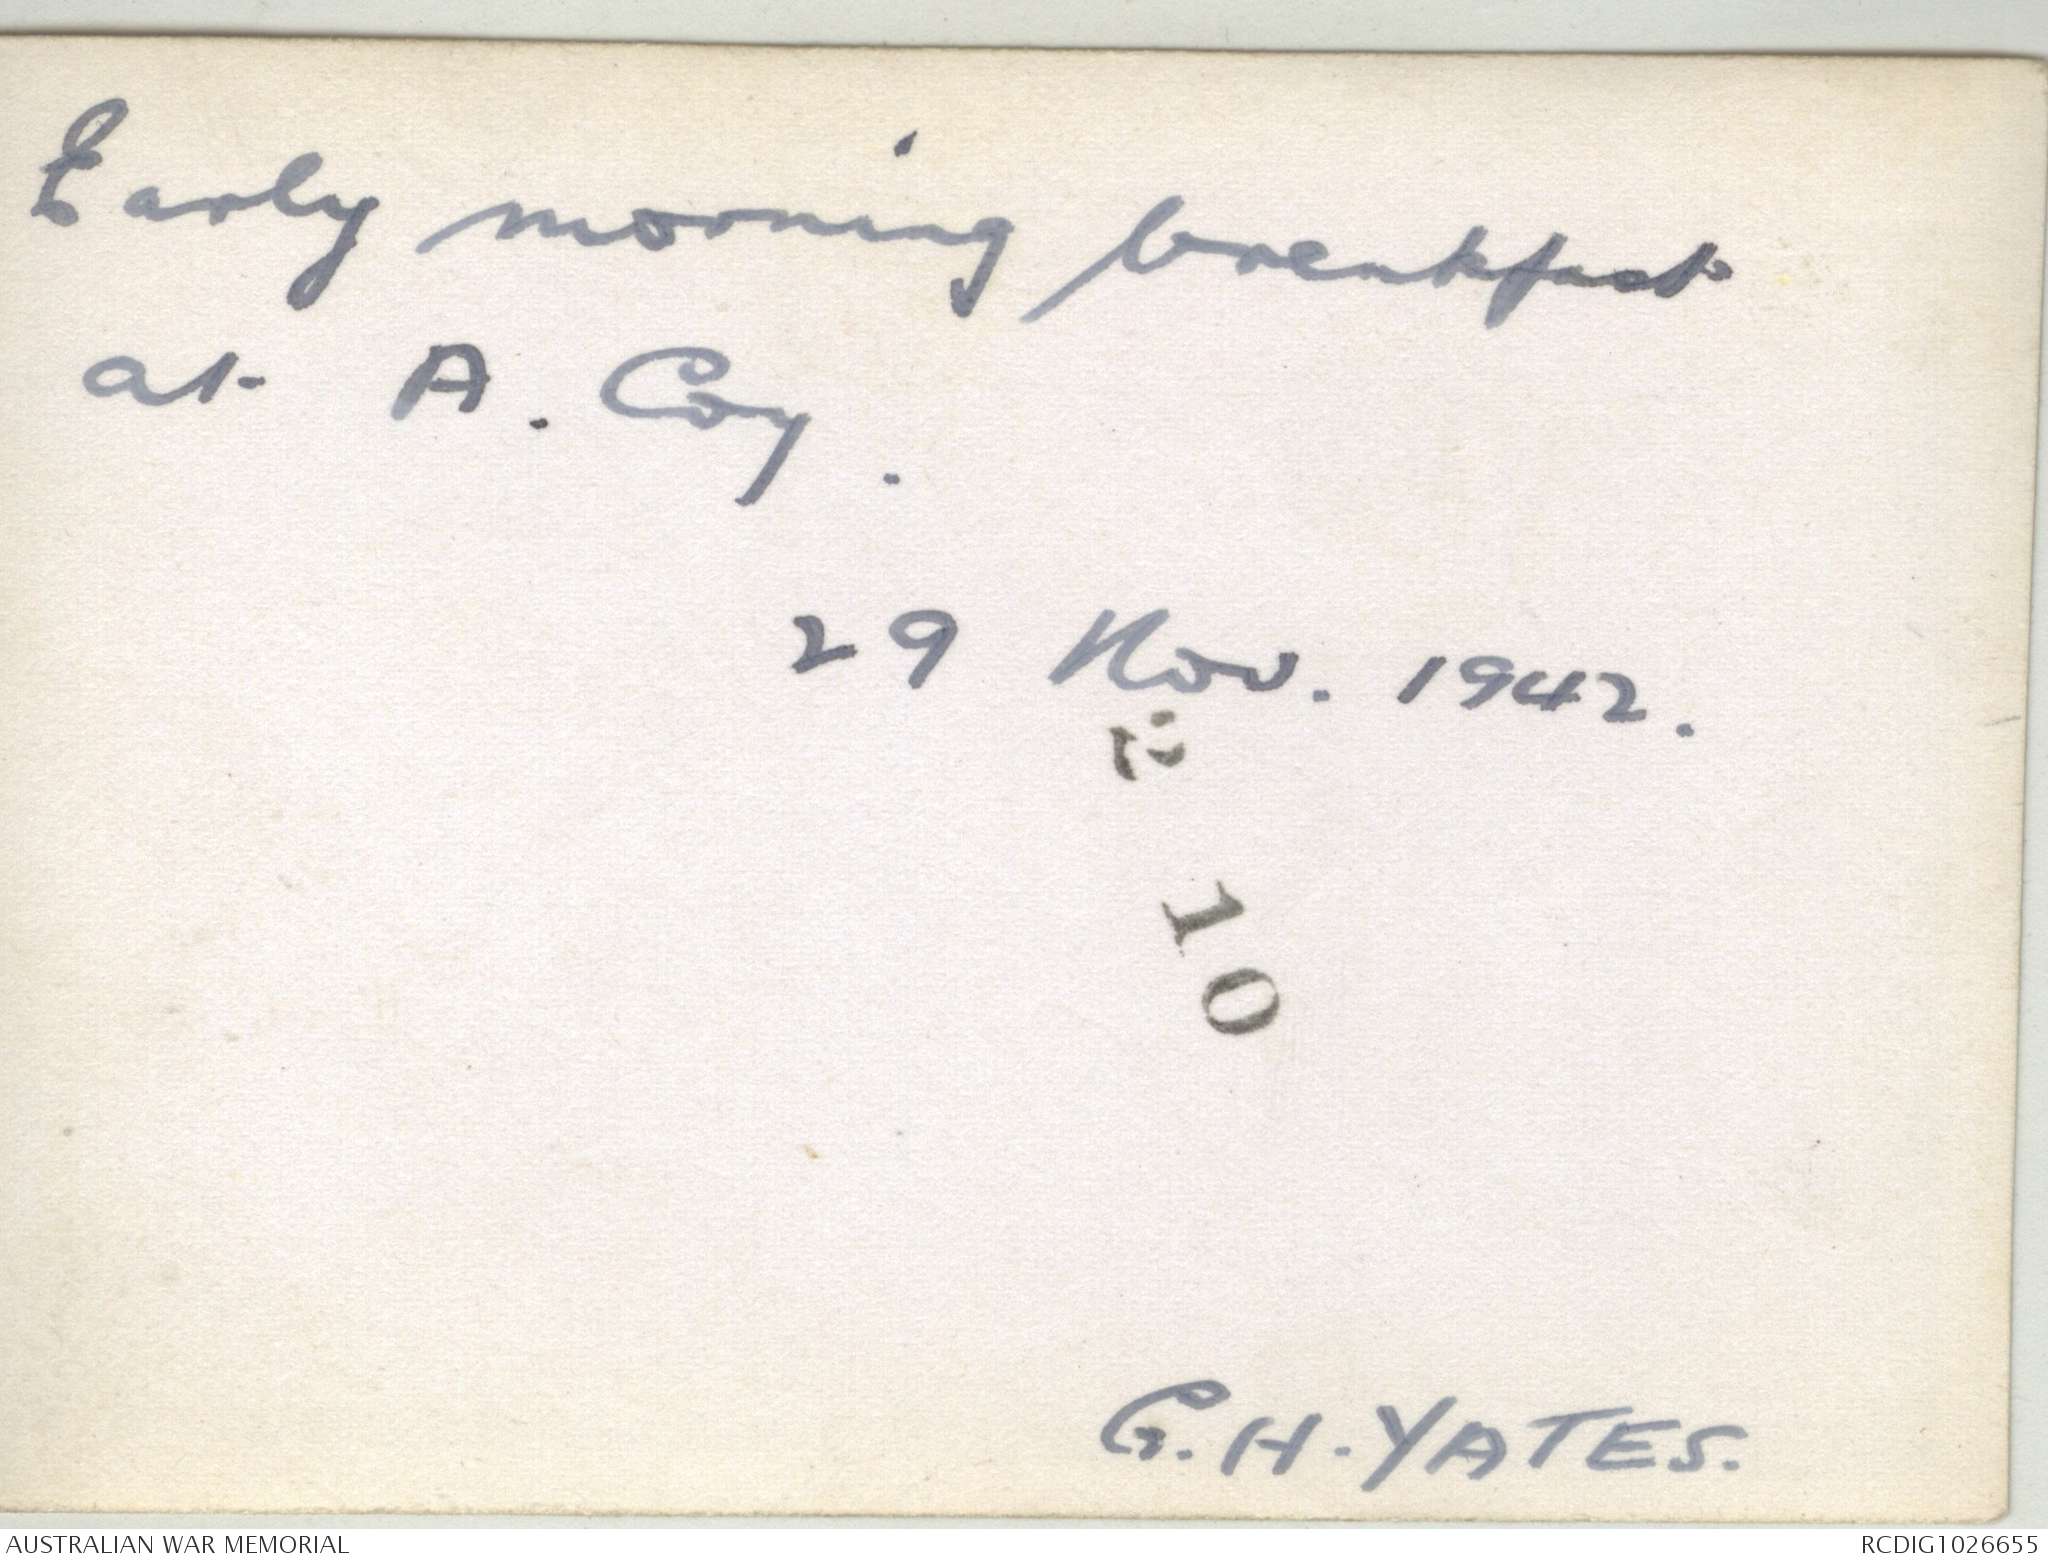 Early morning breakfast
at A. Coy.
29 Nov. 1942.
10
G.H. YATES.
AUSTRALIAN WAR MEMORIAL
RCDIG1026655